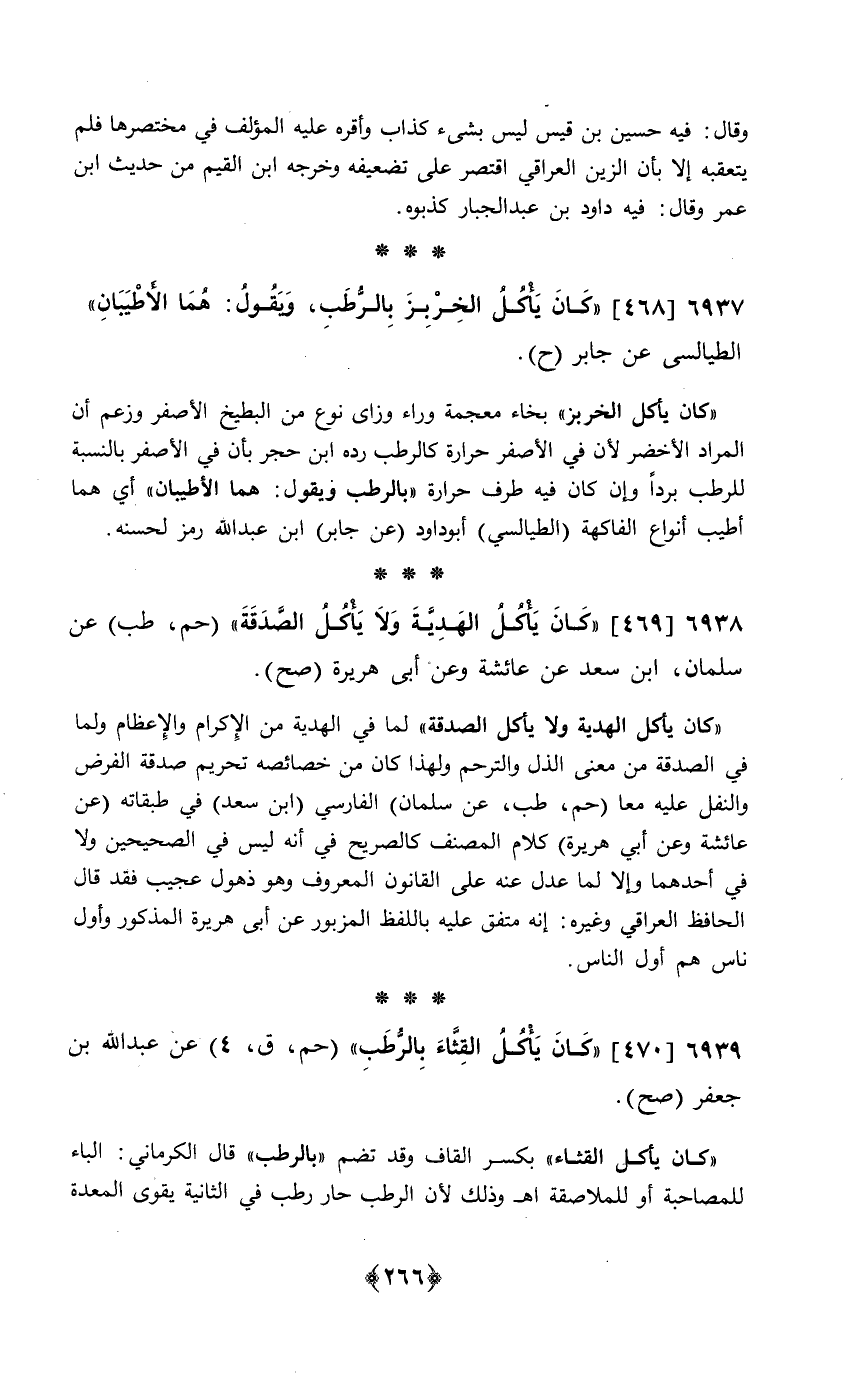 وقال: فيه حسين بن قيس ليس بشىء كذاب وأقره عليه المؤلف في مختصرها فلم
يتعقبه إلا بأن الزين العراقي اقتصر على تضعيفه وخرجه ابن القيم من حديث ابن
عمر وقال: فيه داود بن عبدالجبار كذبوه.
* * *
٦٩٣٧ [٤٦٨] «كَـانَ يَأْكُـلُ الخِـرْبِـزَ بِالـرُّطَبِ، وَيَقُـولُ: هُمَا الأَطْيَبَانِ»
الطيالسى عن جابر (ح).
«كان يأكل الخربز» بخاء معجمة وراء وزاى نوع من البطيخ الأصفر وزعم أن
المراد الأخضر لأن في الأصفر حرارة كالرطب رده ابن حجر بأن في الأصفر بالنسبة
للرطب برداً وإن كان فيه طرف حرارة «بالرطب ويقول: هما الأطيبان» أي هما
أطيب أنواع الفاكهة (الطيالسي) أبوداود (عن جابر) ابن عبدالله رمز لحسنه.
* * *
٦٩٣٨ [٤٦٩] «كَـانَ يَأْكُـلُ الهَـدِيَّـةَ وَلاَ يَأْكُـلُ الصَّدَقَةَ» (حم، طب) عن
سلمان، ابن سعد عن عائشة وعن أبى هريرة (صح).
«كان يأكل الهدية ولا يأكل الصدقة» لما في الهدية من الإكرام والإعظام ولما
في الصدقة من معنى الذل والترحم ولهذا كان من خصائصه تحريم صدقة الفرض
والنفل عليه معا (حم، طب، عن سلمان) الفارسي (ابن سعد) في طبقاته (عن
عائشة وعن أبي هريرة) كلام المصنف كالصريح في أنه ليس في الصحيحين ولا
في أحدهما وإلا لما عدل عنه على القانون المعروف وهو ذهول عجيب فقد قال
الحافظ العراقي وغيره: إنه متفق عليه باللفظ المزبور عن أبى هريرة المذكور وأول
ناس هم أول الناس.
* * *
٦٩٣٩ [٤٧٠] «كَـانَ يَأْكُـلُ القِثَّاءَ بِالرُّطَبِ» (حم، ق، ٤) عن عبدالله بن
جعفر (صح).
«كـان يأكـل القثـاء» بكسـر القاف وقد تضم «بالرطب» قال الكرماني: الباء
للمصاحبة أو للملاصقة اهـ وذلك لأن الرطب حار رطب في الثانية يقوى المعدة
﴿٢٦٦﴾